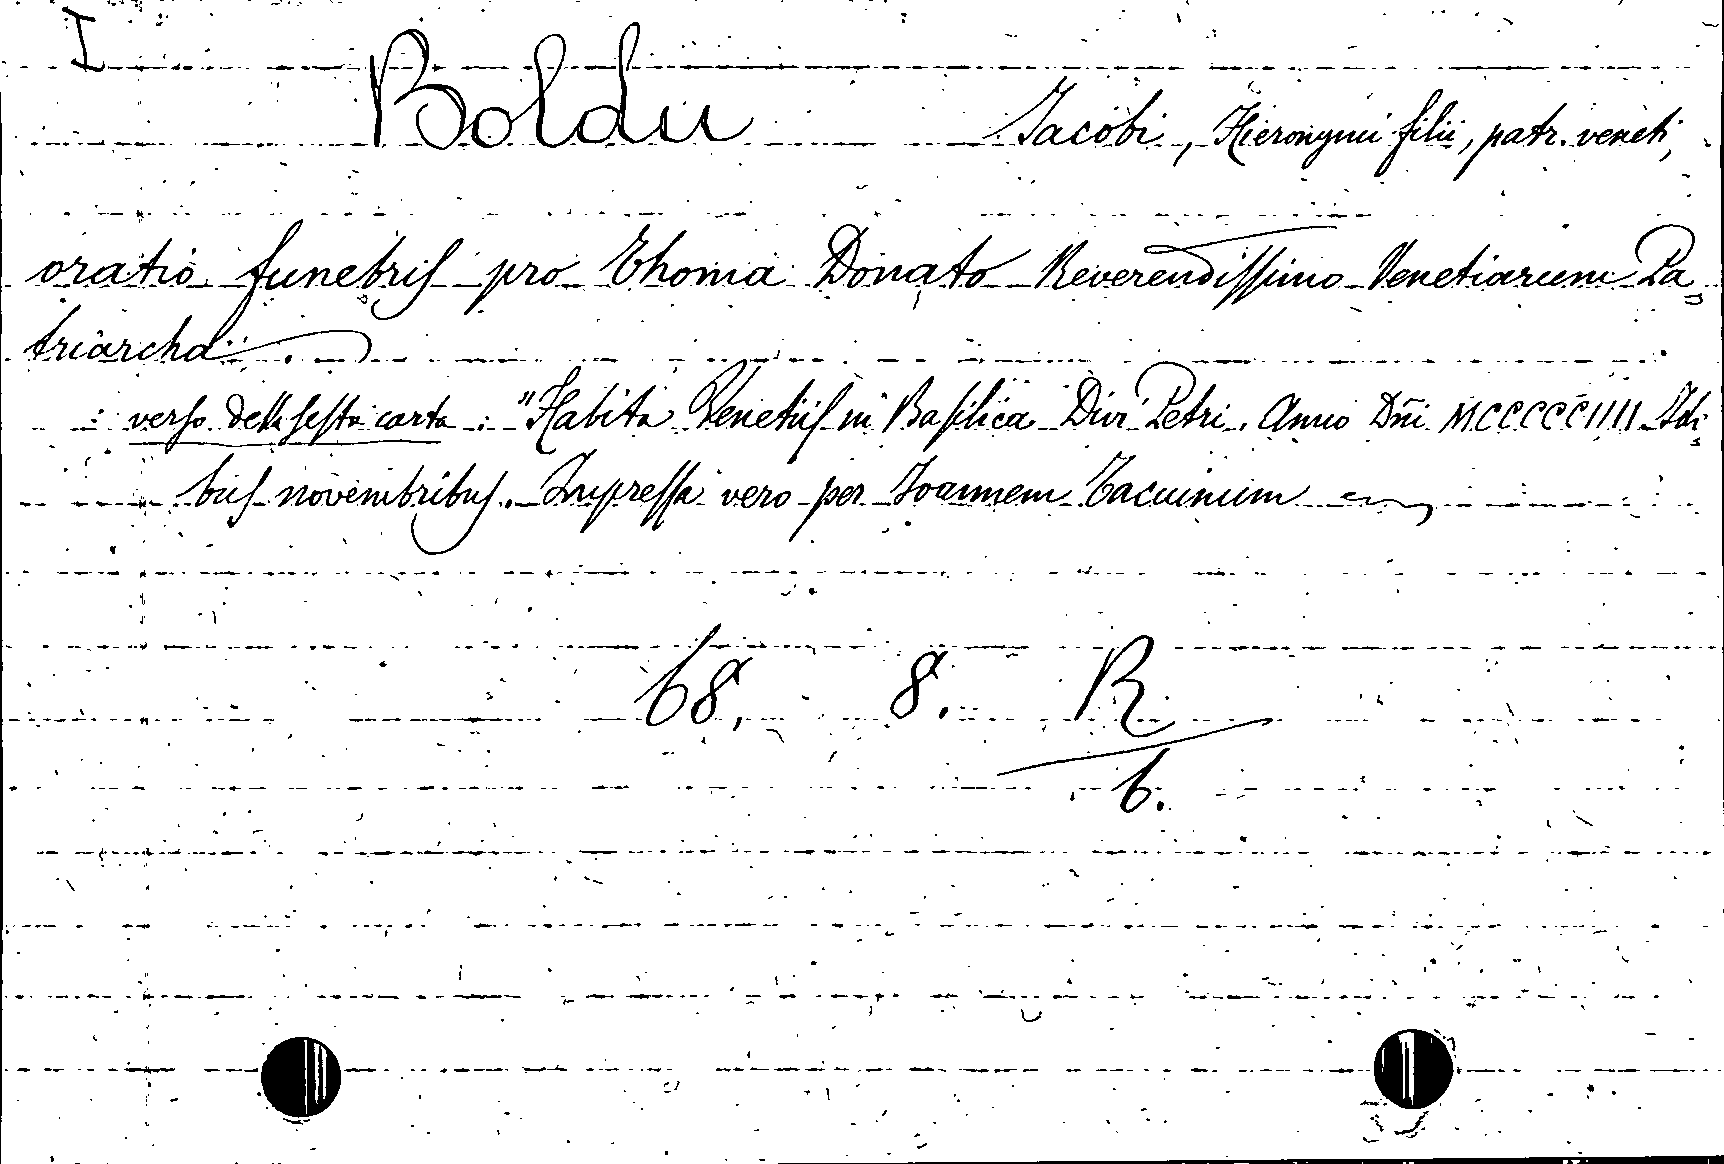 I
Boldu Jacobi, Hieronymi filii, patr. veneti,
oratio funebris pro Thoma Donato Reverendissimo Venetiarum Pa-
triarcha.
verso della sesta carta: "Habita Venetiis in Basilica Divi Petri. Anno Dñi MCCCCCIIII Idi-
bus novembribus. Impressa vero per Joannem Tacuinum
68. 8. R
6.